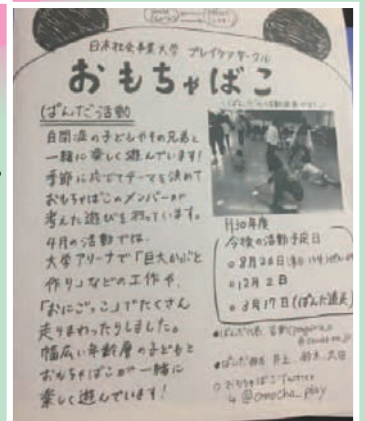 日本社会事業大学 プレイケアサークル
おもちゃばこ
ぱんだ活動
自閉症の子どもやその兄弟と
一緒に楽しく遊んでいます!
季節に応じてテーマを決めて
おもちゃばこのメンバーが
考えた遊びを行っています。
4月の活動では、
大学アリーナで「巨大かぶと
作り」などの工作や、
「おにごっこ」でたくさん
走りまわったりしました。
幅広い年齢層の子どもと
おもちゃばこが一緒に
楽しく遊んでいます!
H30年度
今後の活動予定日
○8月26日
○12月2日
○3月17日(ぱんだ遠足)
○おもちゃばこTwitter
↳ @omocha_play